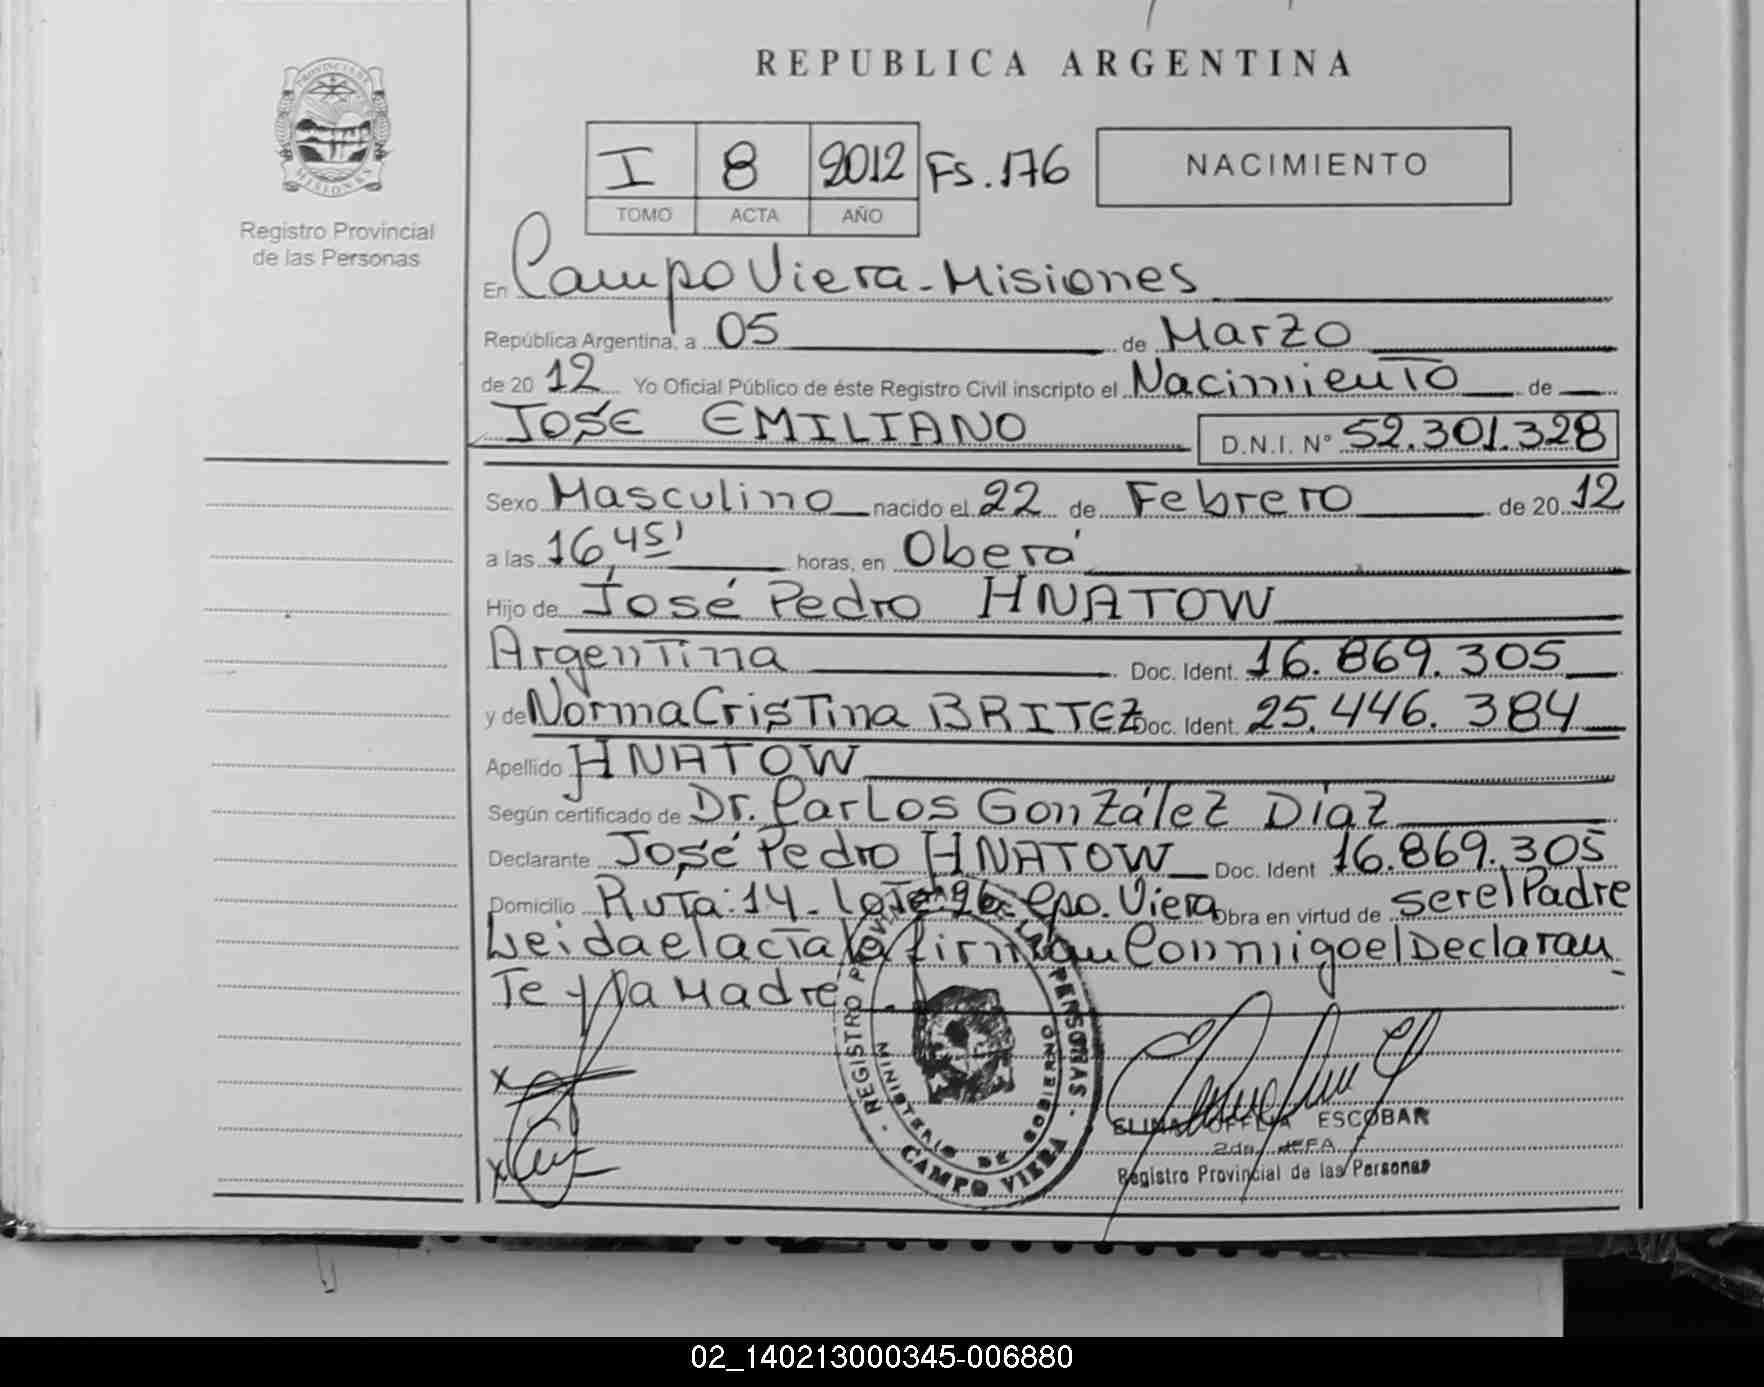 REPUBLICA ARGENTINA
PROVINCIA DE
MISIONES
Registro Provincial
de las Personas
I 8 2012 Fs.176
TOMO ACTA AÑO
NACIMIENTO
En Campo Viera - Misiones
República Argentina, a 05 de Marzo
de 2012 Yo Oficial Público de éste Registro Civil inscripto el Nacimiento de
JOSE EMILIANO D.N.I. N° 52.301.328
Sexo Masculino nacido el 22 de Febrero de 2012
a las 16,45' horas, en Oberá
Hijo de José Pedro HNATOW
Argentina Doc. Ident. 16.869.305
y de Norma Cristina BRITEZ Doc. Ident. 25.446.384
Apellido HNATOW
Según certificado de Dr. Carlos González Díaz
Declarante José Pedro HNATOW Doc. Ident 16.869.305
Domicilio Ruta:14 - Lote-26- Cpo. Viera Obra en virtud de ser el Padre
Leida el acta la firman Conmigo el Declaran
Te y la Madre
REGISTRO PROVINCIAL DE LAS PERSONAS
MINISTERIO DE GOBIERNO
CAMPO VIERA
ESCOBAR
2da. JEFA
Registro Provincial de las Personas
02_140213000345-006880